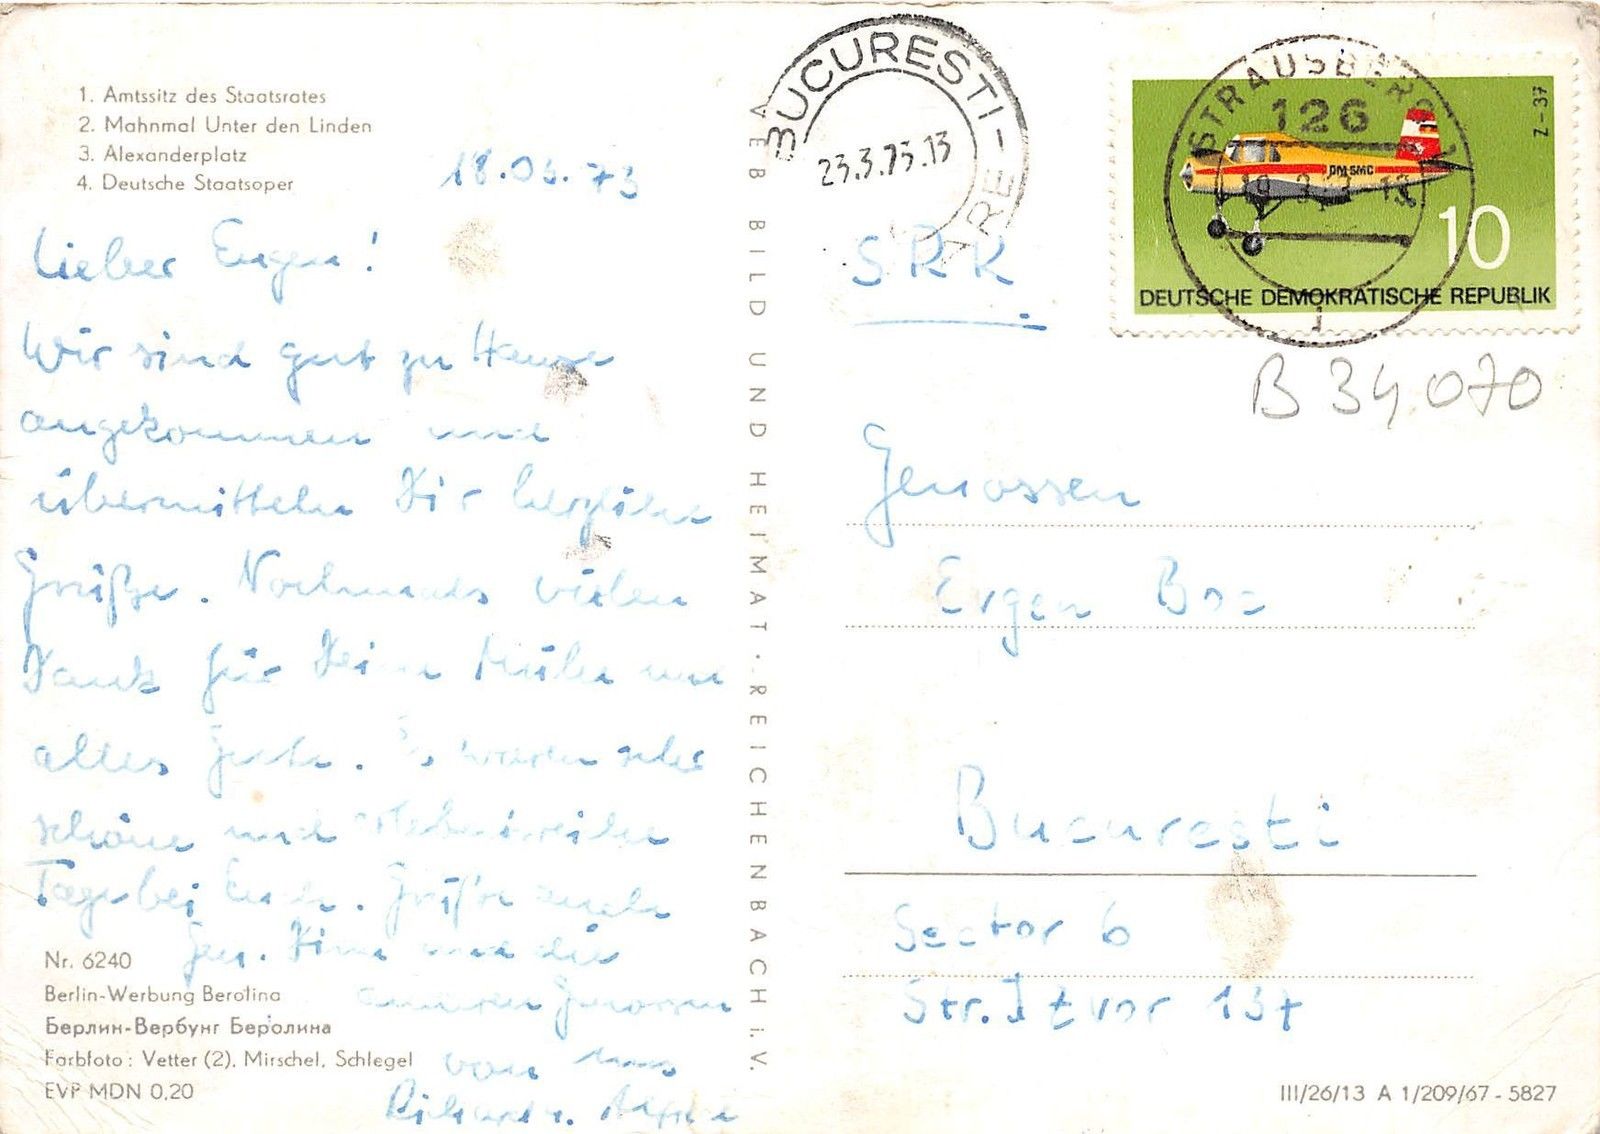 1. Amtssitz des Staatsrates
2. Mahnmal Unter den Linden
3. Alexanderplatz
4. Deutsche Staatsoper
18.03.73
Lieber Eugen!
Wir sind gut zu Hause
angekommen und
übermitteln Dir herzliche
Grüße. Nochmals vielen
Dank für Deine Mühe und
alles Gute. Es waren sehr
schöne und erlebnisreiche
Tage bei Euch. Grüße auch
Gen. Dima und die
anderen Genossen
von uns
Nr. 6240
Berlin-Werbung Berolina
Берлин-Вербунг Беролина
Farbfoto: Vetter (2), Mirschel, Schlegel
EVP MDN 0,20
VEB BILD UND HEIMAT · REICHENBACH i. V.
BUCURESTI
23.3.73.13
STRAUSBERG 1
126
Z-37
DM-SMC
10
DEUTSCHE DEMOKRATISCHE REPUBLIK
SRR
B 34070
Genossen
Eugen
Bucuresti
Sector 6
Str. Izvor 137
III/26/13 A 1/209/67-5827